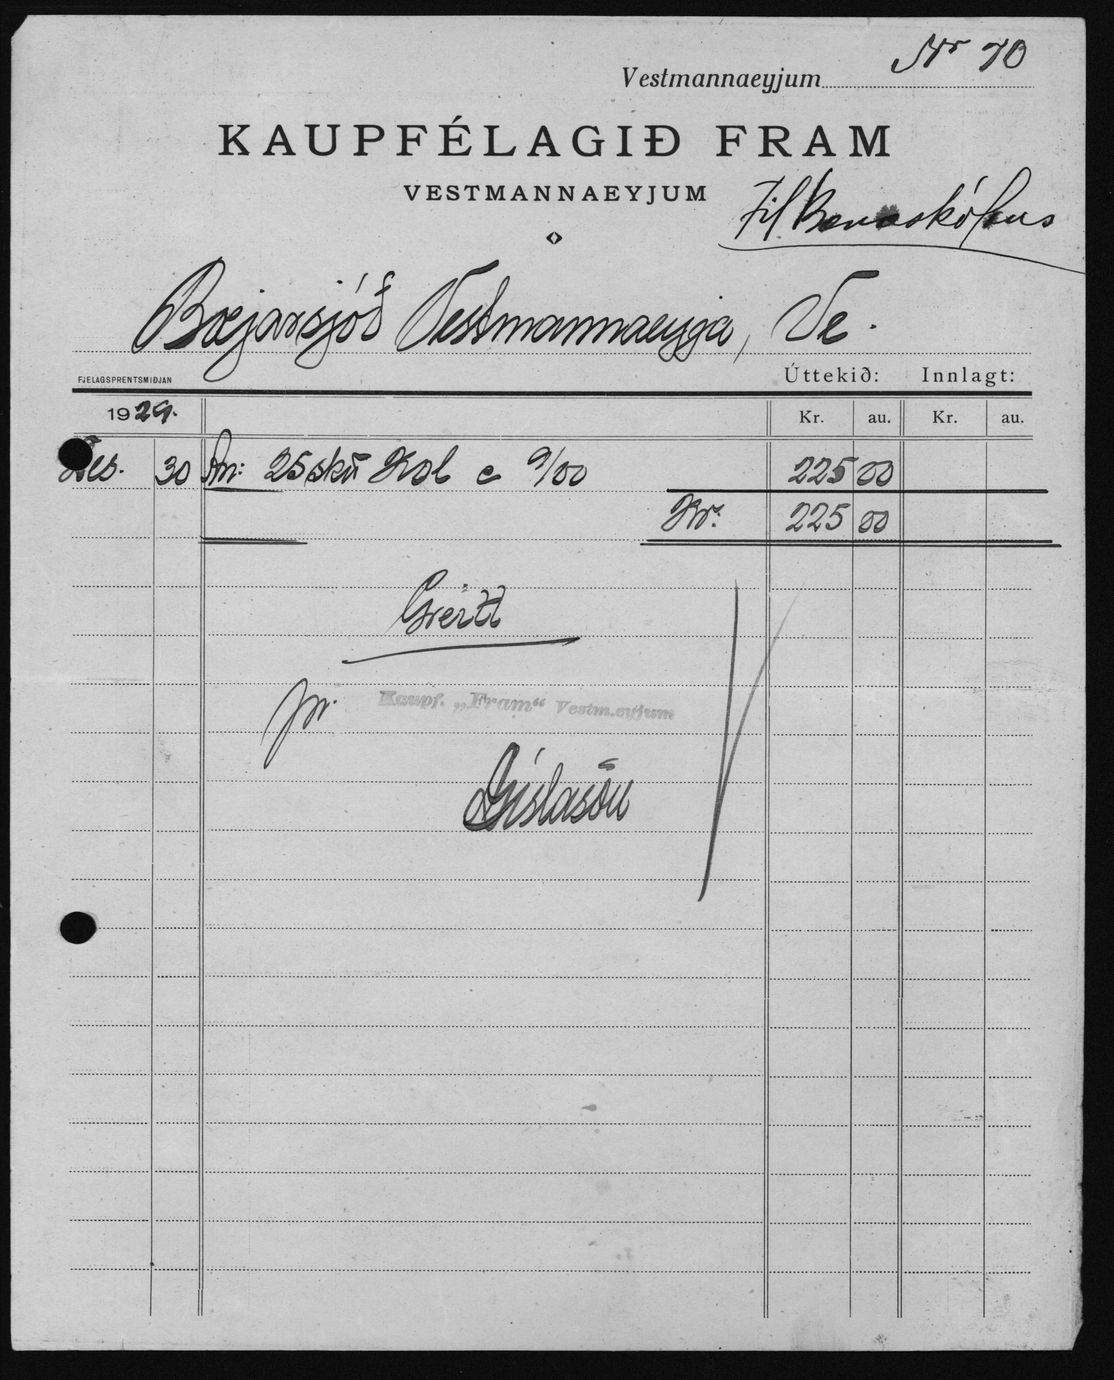 Vestmannaeyjum Nr 70
KAUPFÉLAGIÐ FRAM
VESTMANNAEYJUM
Til Barnaskólans
Bæjarsjóð Vestmannaeyja, Ve.
FJELAGSPRENTSMIÐJAN Úttekið: Innlagt:
1929. Kr. au. Kr. au.
Des. 30 An: 25 sk͞ Kol c 9/00 225 00
Kr. 225 00
Greitt
pr. Kaupf. „Fram“ Vestm.eyjum
Gíslason